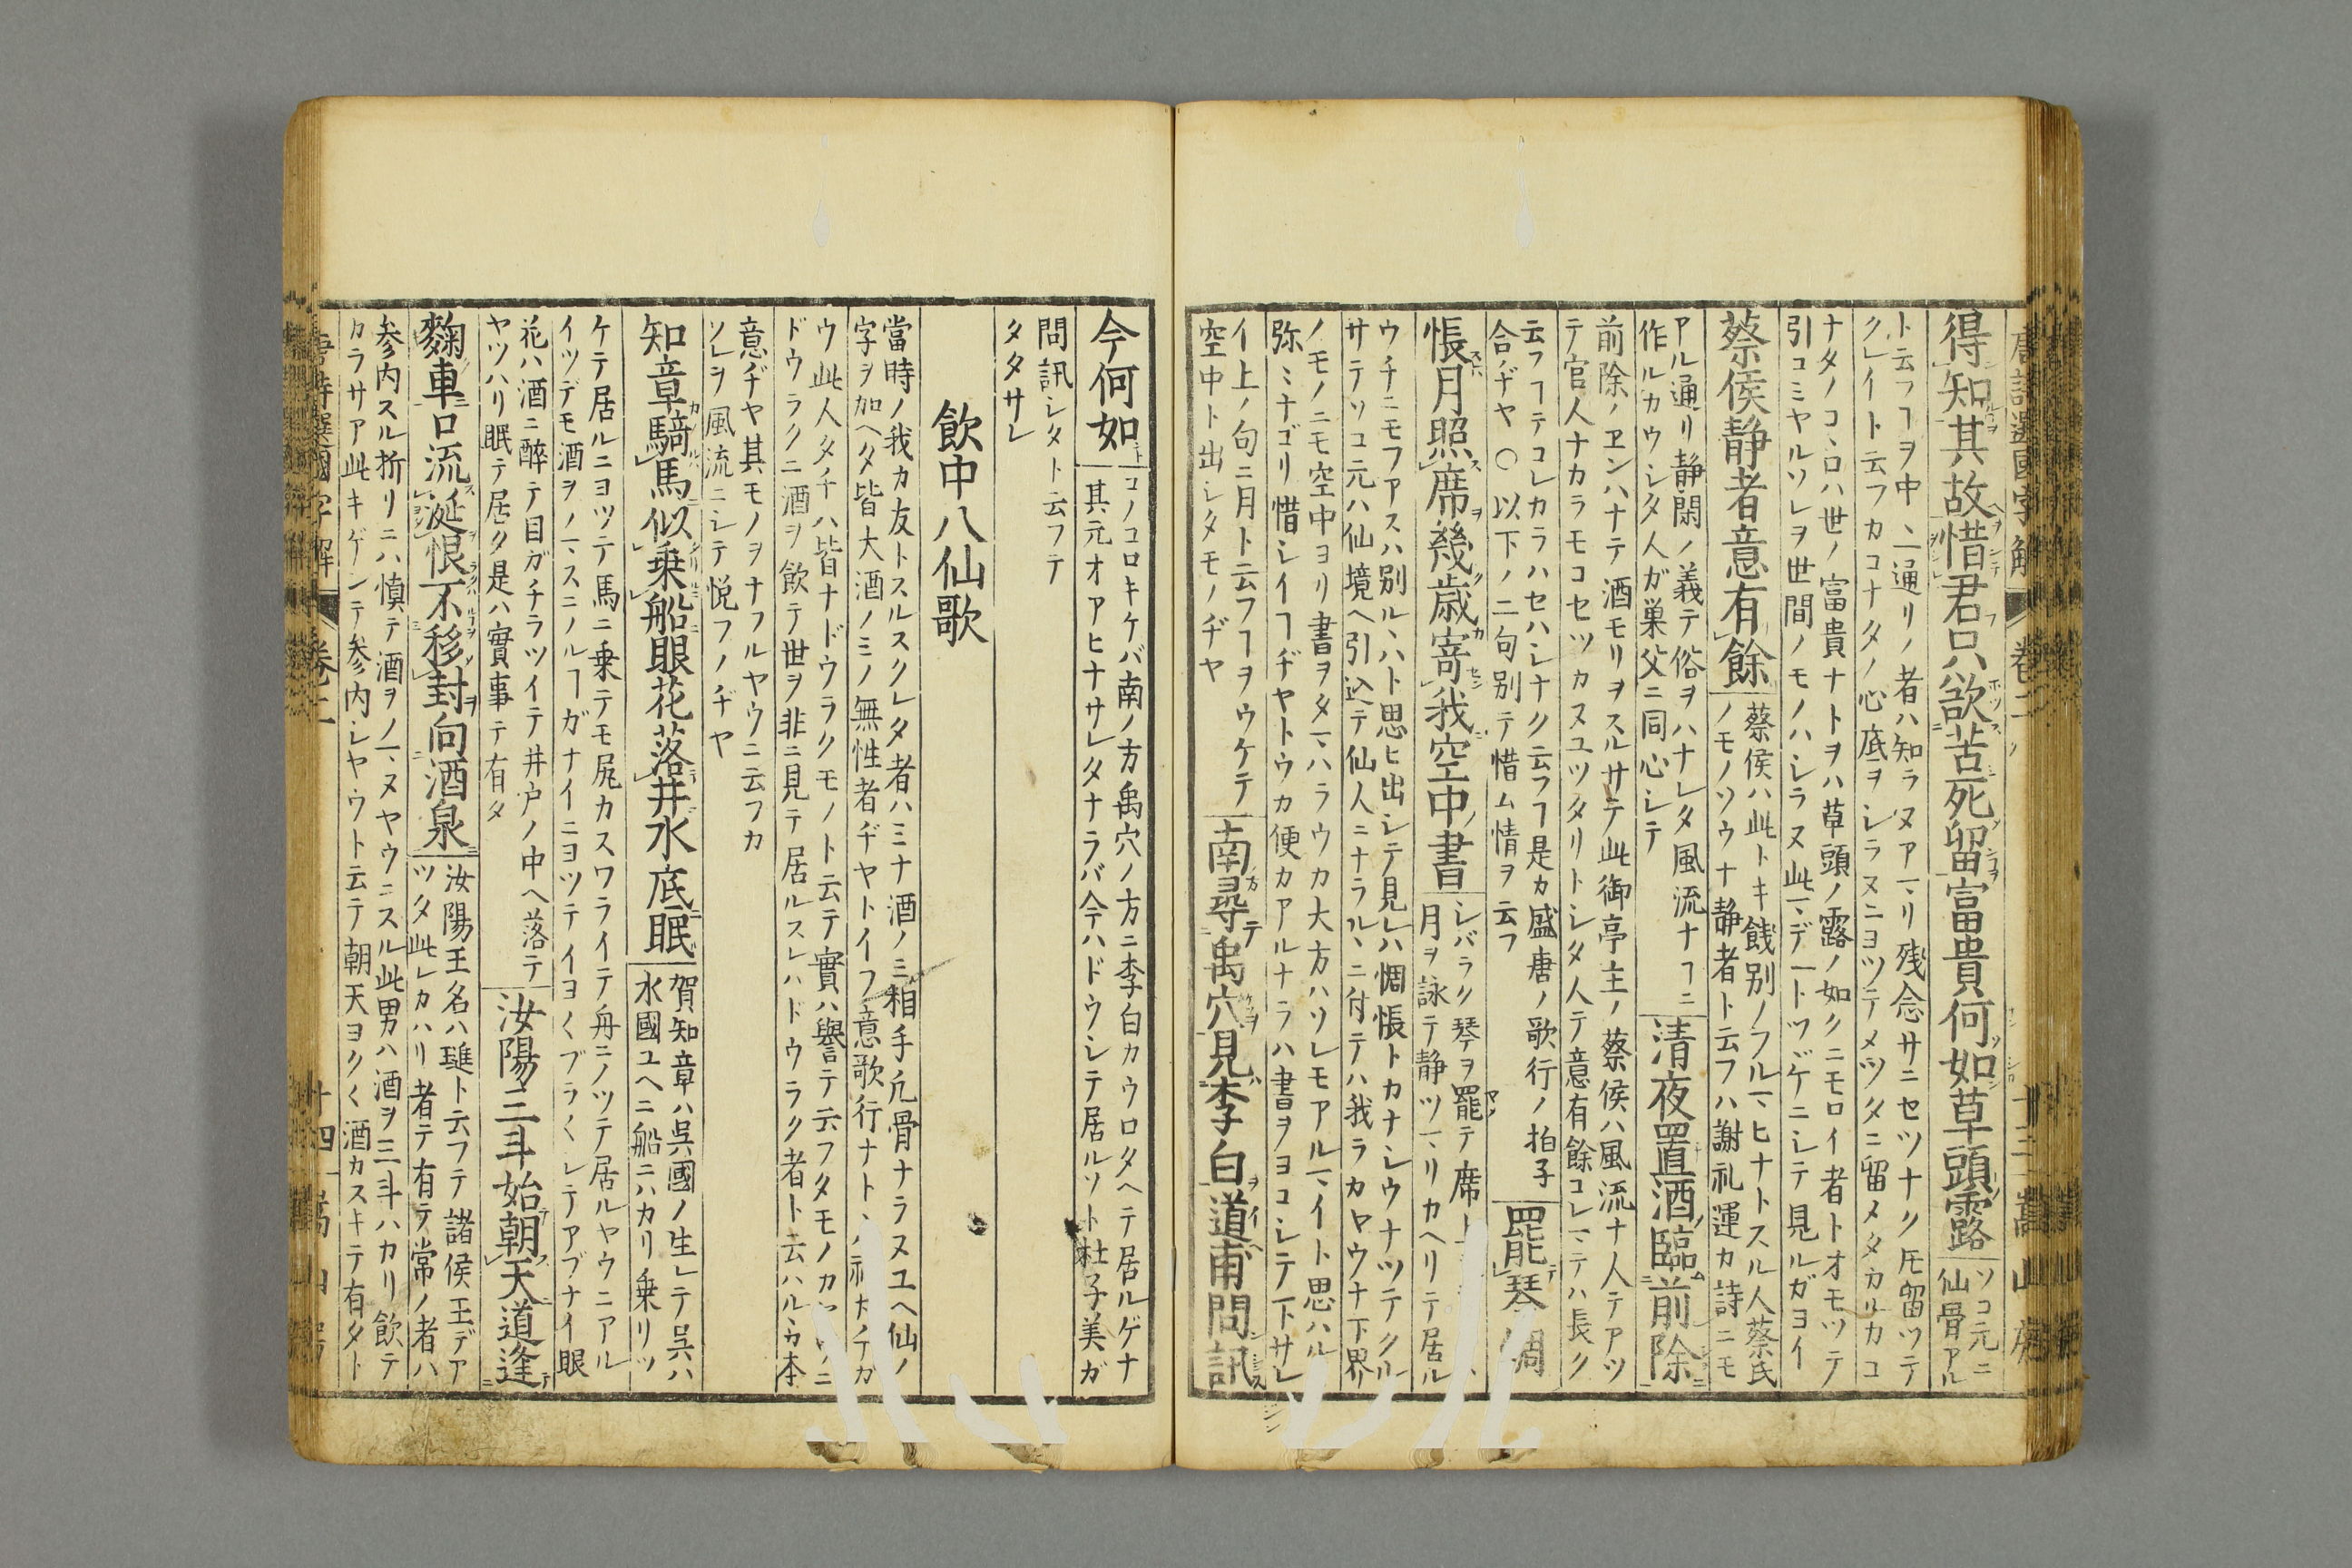 得知其故惜君只欲苦死留富貴何如草頭露
ソコ元ニ
仙骨アル
ト云フヿヲ中〻一通リノ者ハ知ラヌアヽリ残念サニセツナク圧留ツテ
クレイト云フカコナタノ心底ヲシラヌニヨツテメツタニ留メタカルカコ
ナタノコヽロハ世ノ富貴ナトヲハ草頭ノ露ノ如クニモロイ者トオモツテ
引コミヤルソレヲ世間ノモノハシラヌ此一デ一トツゲニシテ見ルガヨイ
蔡侯静者意有餘
蔡侯ハ此トキ餞別ノフル一ヒナトスル人蔡氏
ノモノソウナ静者ト云フハ謝礼運カ詩ニモ
アル通リ静閑ノ義テ俗ヲハナレタ風流ナヿニ
作ルカウシタ人ガ巣父ニ同心シテ
清夜置酒臨前除
前除ノヱンハナテ酒モリヲスルサテ此御亭主ノ蔡侯ハ風流ナ人テアツ
テ官人ナカラモコセツカスユツタリトシタ人テ意有餘コレ一テハ長ク
云フヿテコレカラハセハシナク云フヿ是カ盛唐ノ歌行ノ拍子
合ヂヤ○以下ノ二句別テ惜ム情ヲ云フ
罷琴惆
悵月照席幾歳寄我空中書
シバラク琴ヲ罷テ席
月ヲ詠テ静ツヽリカヘリテ居ル
ウチニモフアスハ別ルヽハト思ヒ出シテ見レハ惆悵トカナシウナツテクル
サテソコ元ハ仙境ヘ引込テ仙人ニナラルヽニ付テハ我ラカヤウナ下界
ノモノニモ空中ヨリ書ヲタ一ハラウカ大方ハソレモアル一イト思ハル
弥〻ナゴリ惜シイヿヂヤトウカ便カアルナラハ書ヲヨコシテ下サレ
イ上ノ句ニ月ト云フヿヲウケテ
空中ト出シタモノヂヤ
南尋禹穴見李白道甫問訊
今何如
コノコロキケバ南ノ方禹穴ノ方ニ李白カウロタヘテ居ルゲナ
其元オアヒナサレタナラバ今ハドウシテ居ルソト杜子美ガ
問訊シタト云フテ
タタサレ
飲中八仙歌
當時ノ我カ友トスルスクレタ者ハミナ酒ノミ相手凢骨ナラヌユヘ仙ノ
字ヲ加ヘタ皆大酒ノミノ無性者ヂヤトイフ意歌行ナトヽ
ウ此人タチハ皆ナドウラクモノト云テ實ハ譽テ云フタモノカ
ドウラクニ酒ヲ飲テ世ヲ非ニ見テ居ルスレハドウラク者ト云ハルヽカ本
意ヂヤ其モノヲナフルヤウニ云フカ
ソレヲ風流ニシテ悦フノヂヤ
知章騎馬似乗船眼花落井水底眠
賀知章ハ呉國ノ生レテ呉ハ
水國ユヘニ船ニハカリ乗リツ
ケテ居ルニヨツテ馬ニ乗テモ尻カスワライテ舟ニノツテ居ルヤウニアル
イツデモ酒ヲノ一スニノルヿガナイニヨツテイヨ〱ブラ〱シテアブナイ眼
花ハ酒ニ醉テ目ガチラツイテ井戸ノ中ヘ落テ
ヤツハリ眠テ居タ是ハ實事テ有タ
汝陽三斗始朝天道逢
麴車口流涎恨不移封向酒泉
汝陽王名ハ璡ト云フテ諸侯王デア
ツタ此レカハリ者テ有テ常ノ者ハ
参内スル折リニハ慎テ酒ヲノ一ヌヤウニスル此男ハ酒ヲ三斗ハカリ飲テ
カラサア此キゲンテ参内シヤウト云テ朝天ヨク〱酒カスキテ有タト